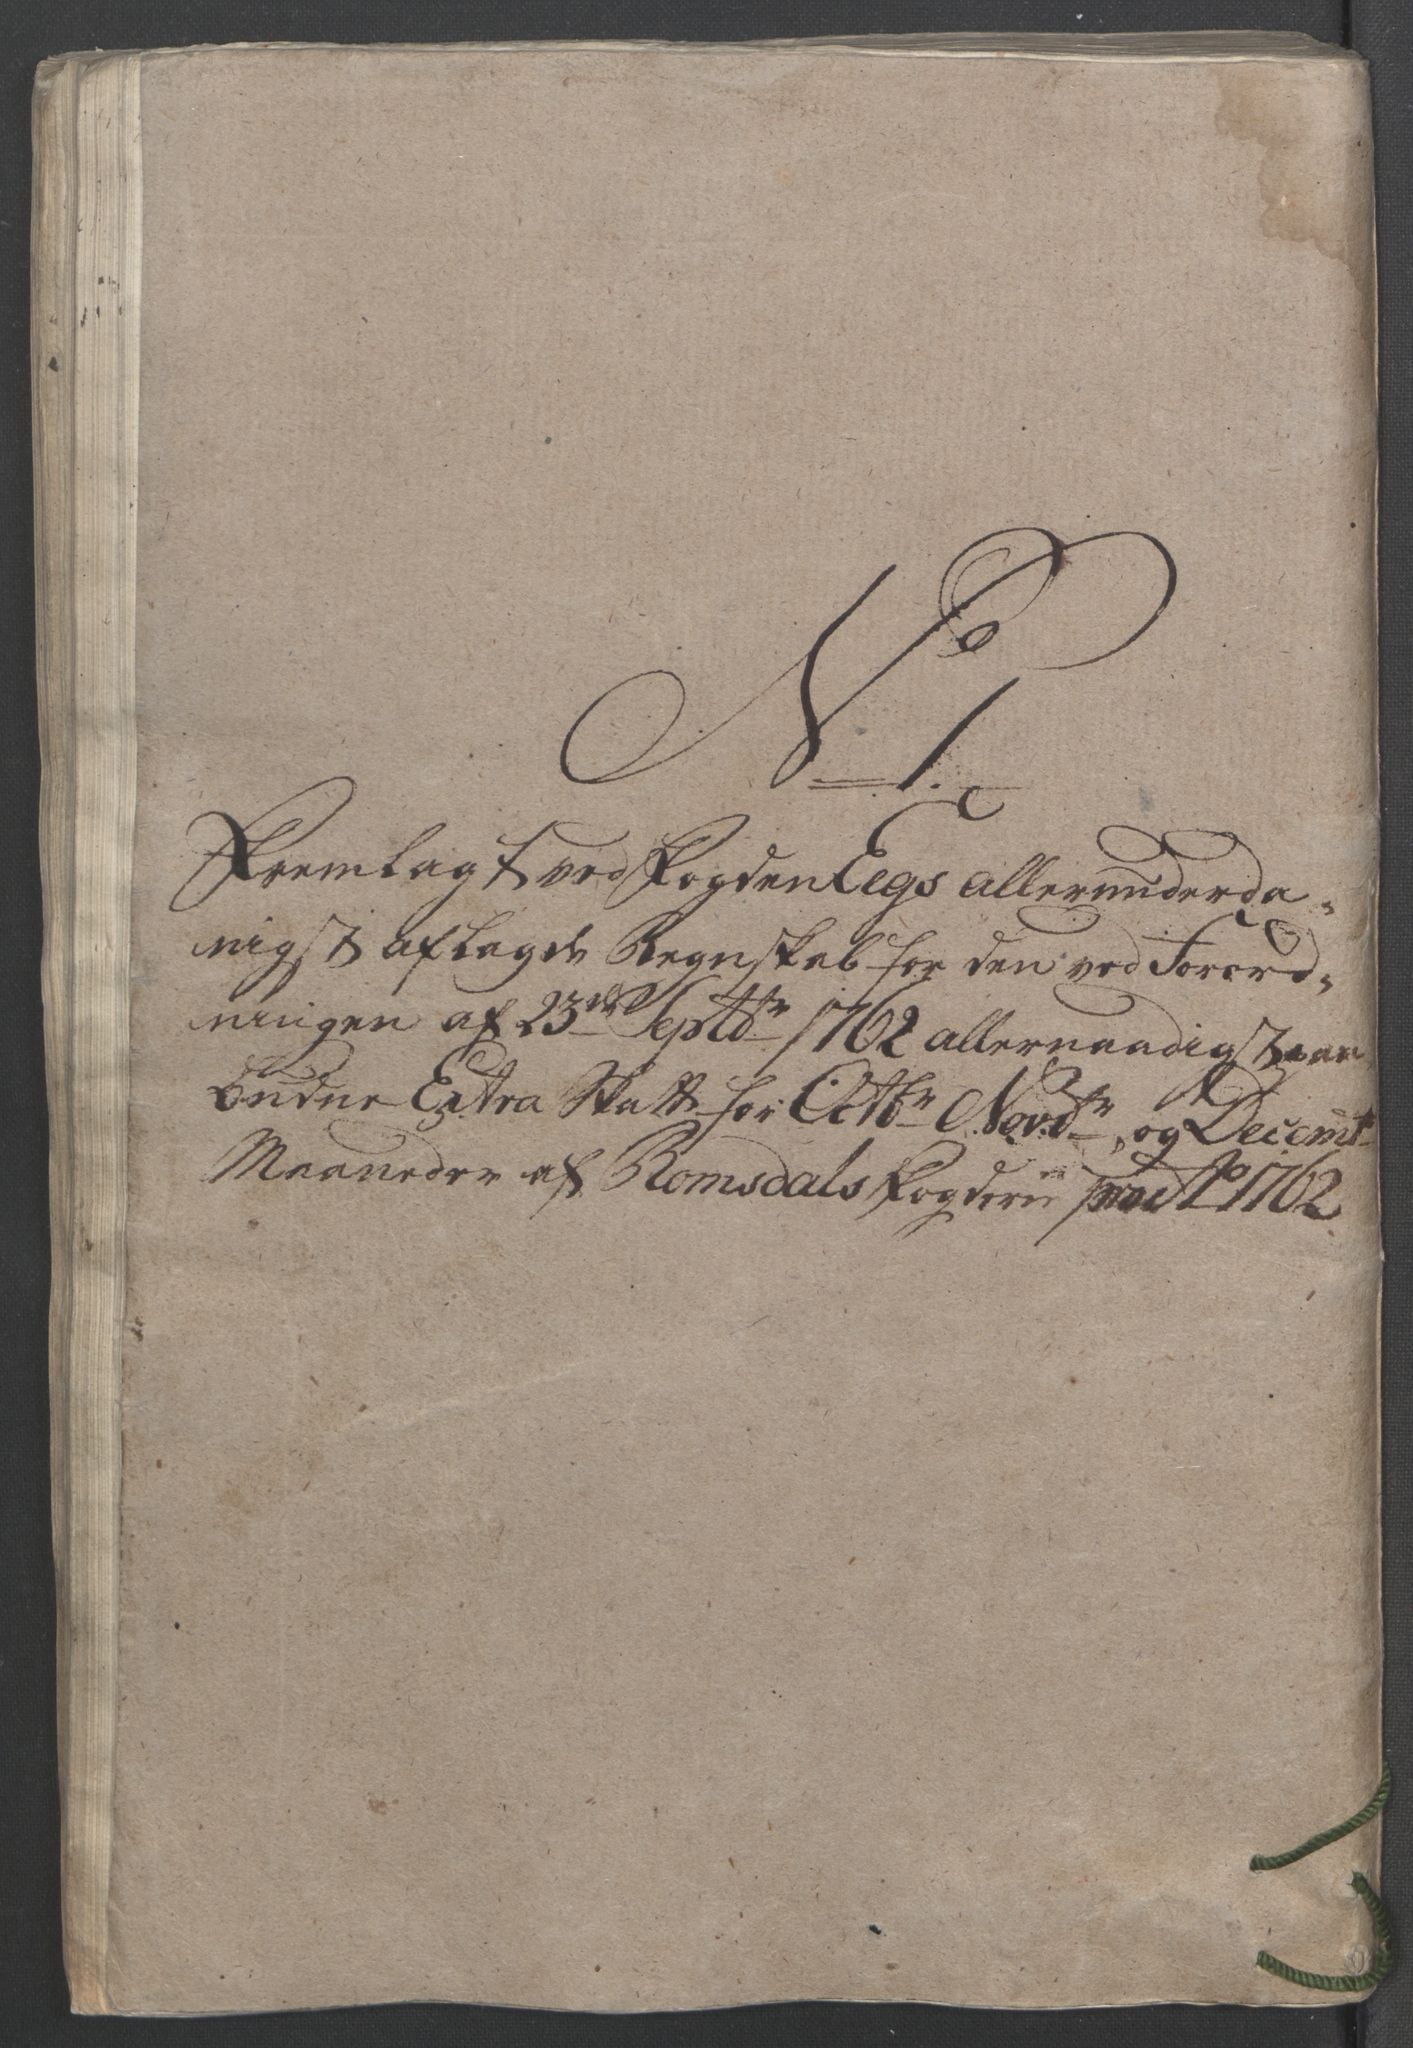 No 1.
Fremlagt ved Fogden Eegs allerunderda-
nigst aflagde Regnskab for den ved Forord-
ningen af 23de Septbr 1762 allernaadigst an
budne Extra Skatt for Octbr Novbr og Decembr
Maaneder af Romsdals Fogderie pro Ao 1762